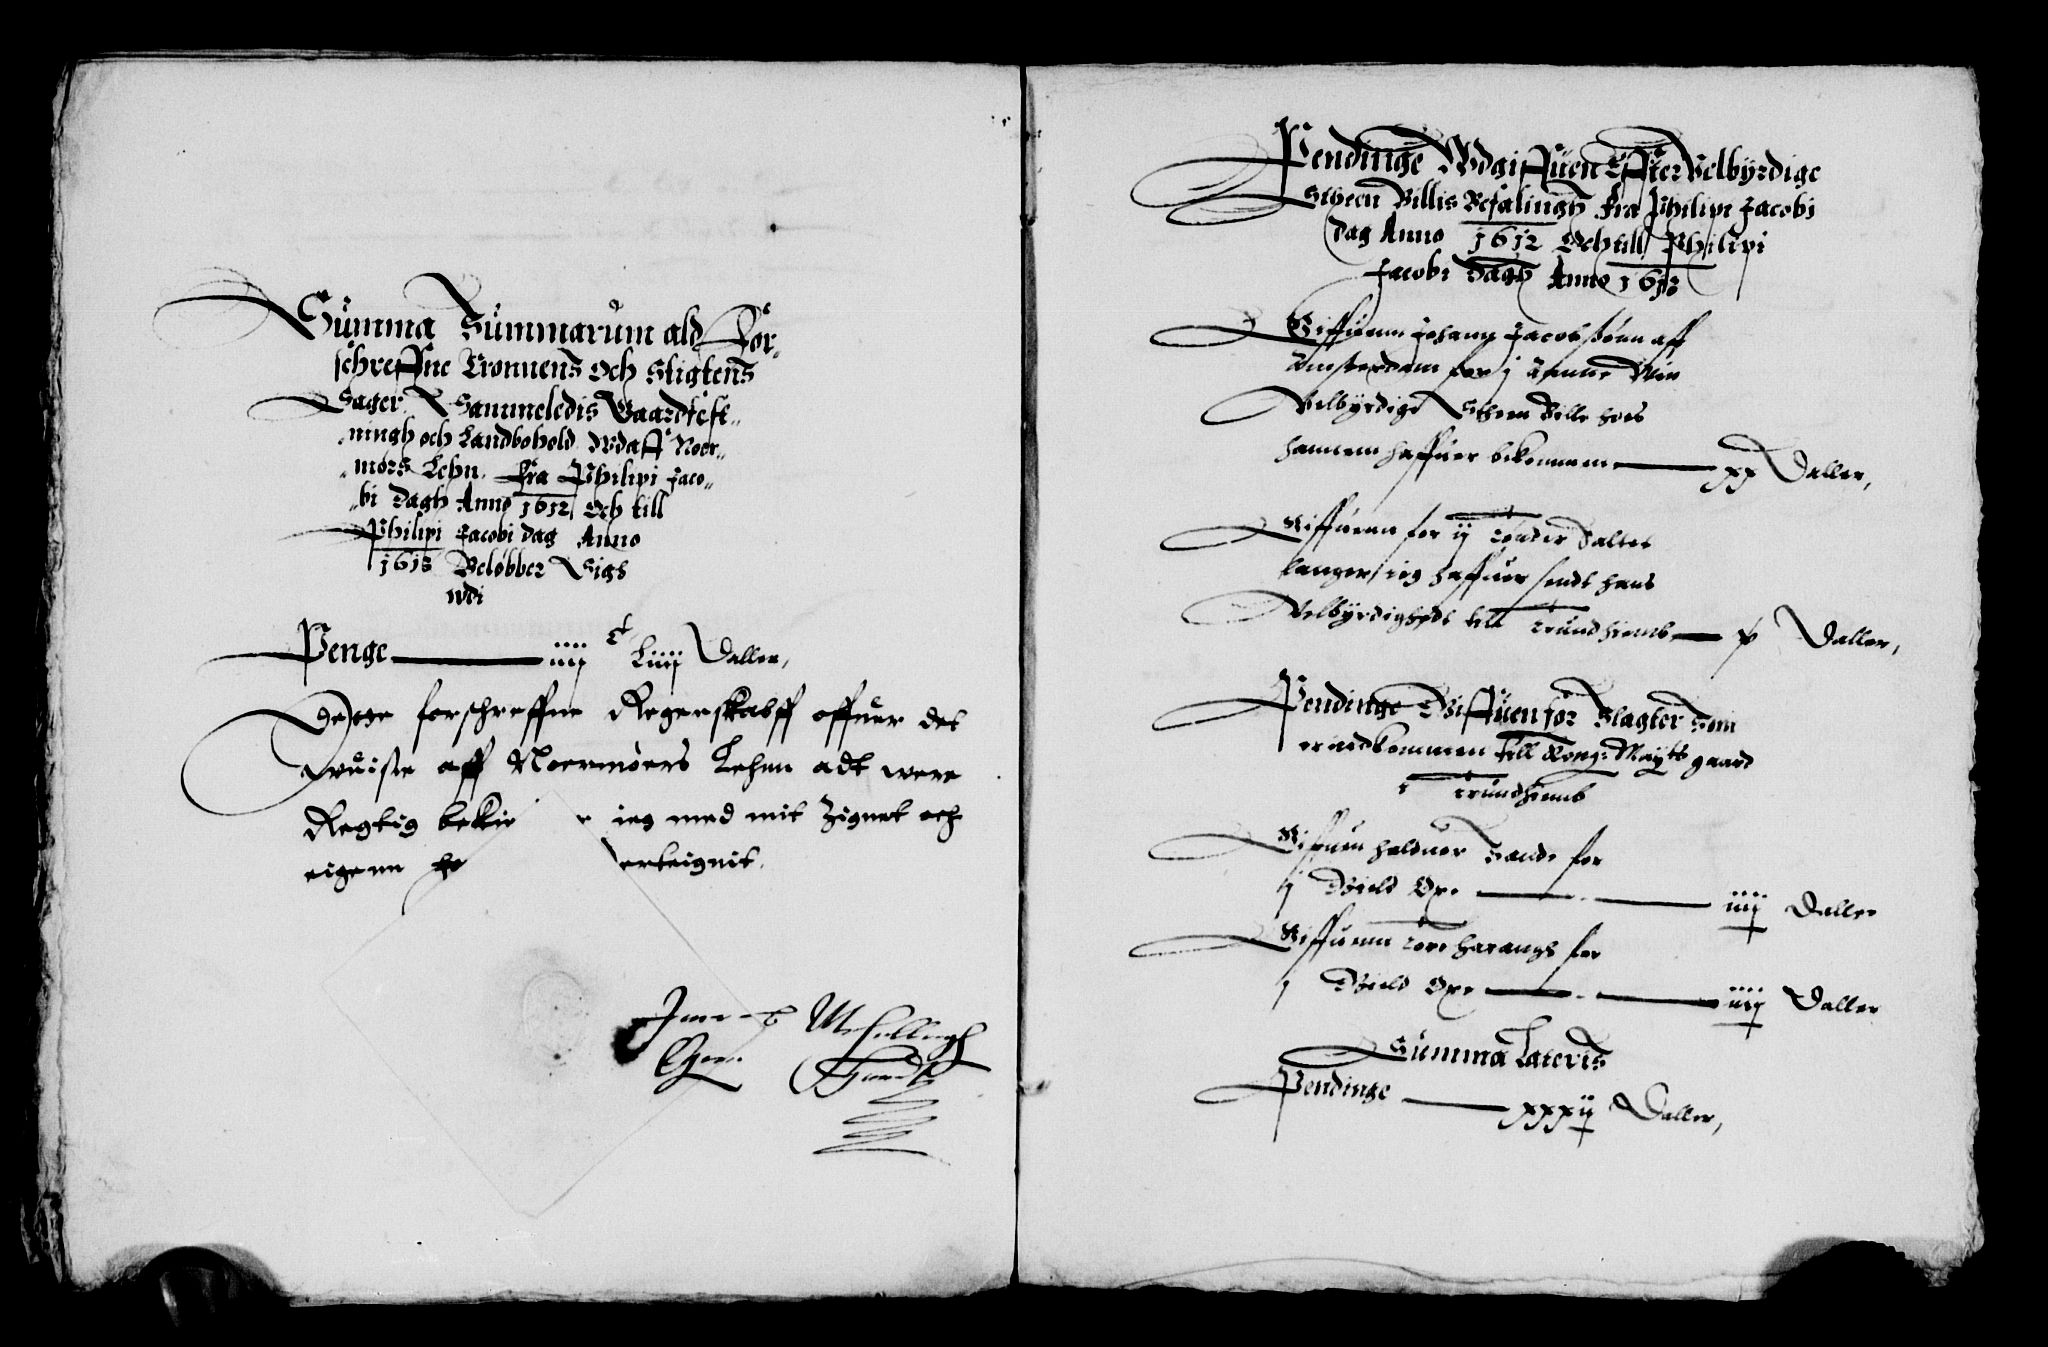 Summa Summarum ald For„
schreffne Cronnens Och Stigtens
Sager, Sammeledis Gaardfest„
„ningh och Landbohold Wdaff Noer„
„mørs Lehn, Fra Philipi Jaco„
„bi Dagh Anno 1612 Och till
Philipi Jacobi dag Anno
1613 Beløbber Sigh
wdi
Penge iiij C Liiij Daller,
forschreffne Regenskabff offuer det
wuiste aff Noermøers Lehnn adt were
Regtig ieg med mit Zignet och
eigenn
Pendinge Wdgiffuen Effter Velbyrdige
Steen Billis Befalingh Fra Philipi Jacobi
dag Anno 1612 Och till Philipi
Jacobi Dagh Anno 1613
Giffuenn Johann Jacobssønn aff
Amsterdam for j Amme Win
Velbyrdige Steen Bille hoes
hannem haffuer bekommen xx Daller,
Giffuenn for ij tønder Saltet
ieg haffuer sendt hans
Velbyrdighedt till Trundhiemb x Daller,
Pendinge Giffuen for Slagter Som
er indkommen till Kong: Maytts gaard
i Trundhiemb
Giffuen Halduor Sande for
j Gield Oxe iiij Daller
Giffuenn Tore Harangh for
j Gield Oxe iiij Daller
Summa Lateris
Pendinge xxxij Daller,